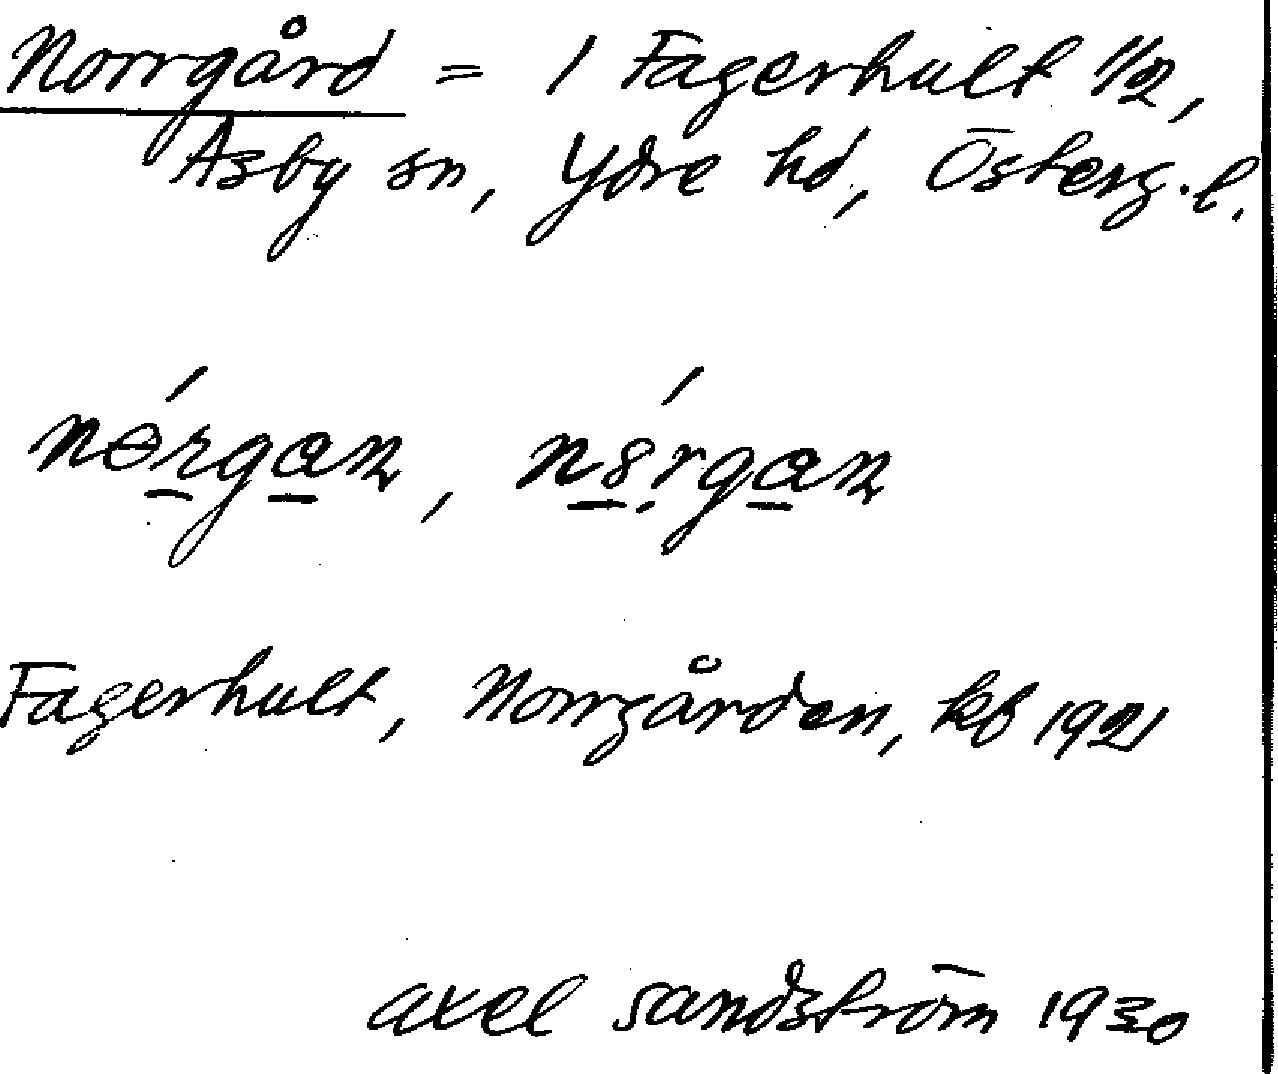 Norrgård = 1 Fagerhult 1/2,
Asby sn, Ydre hd, Österg.l.
nɵ́rgan, n8́rgan
Fagerhult, Norrgården, kb 1921
Axel Sandström 1930